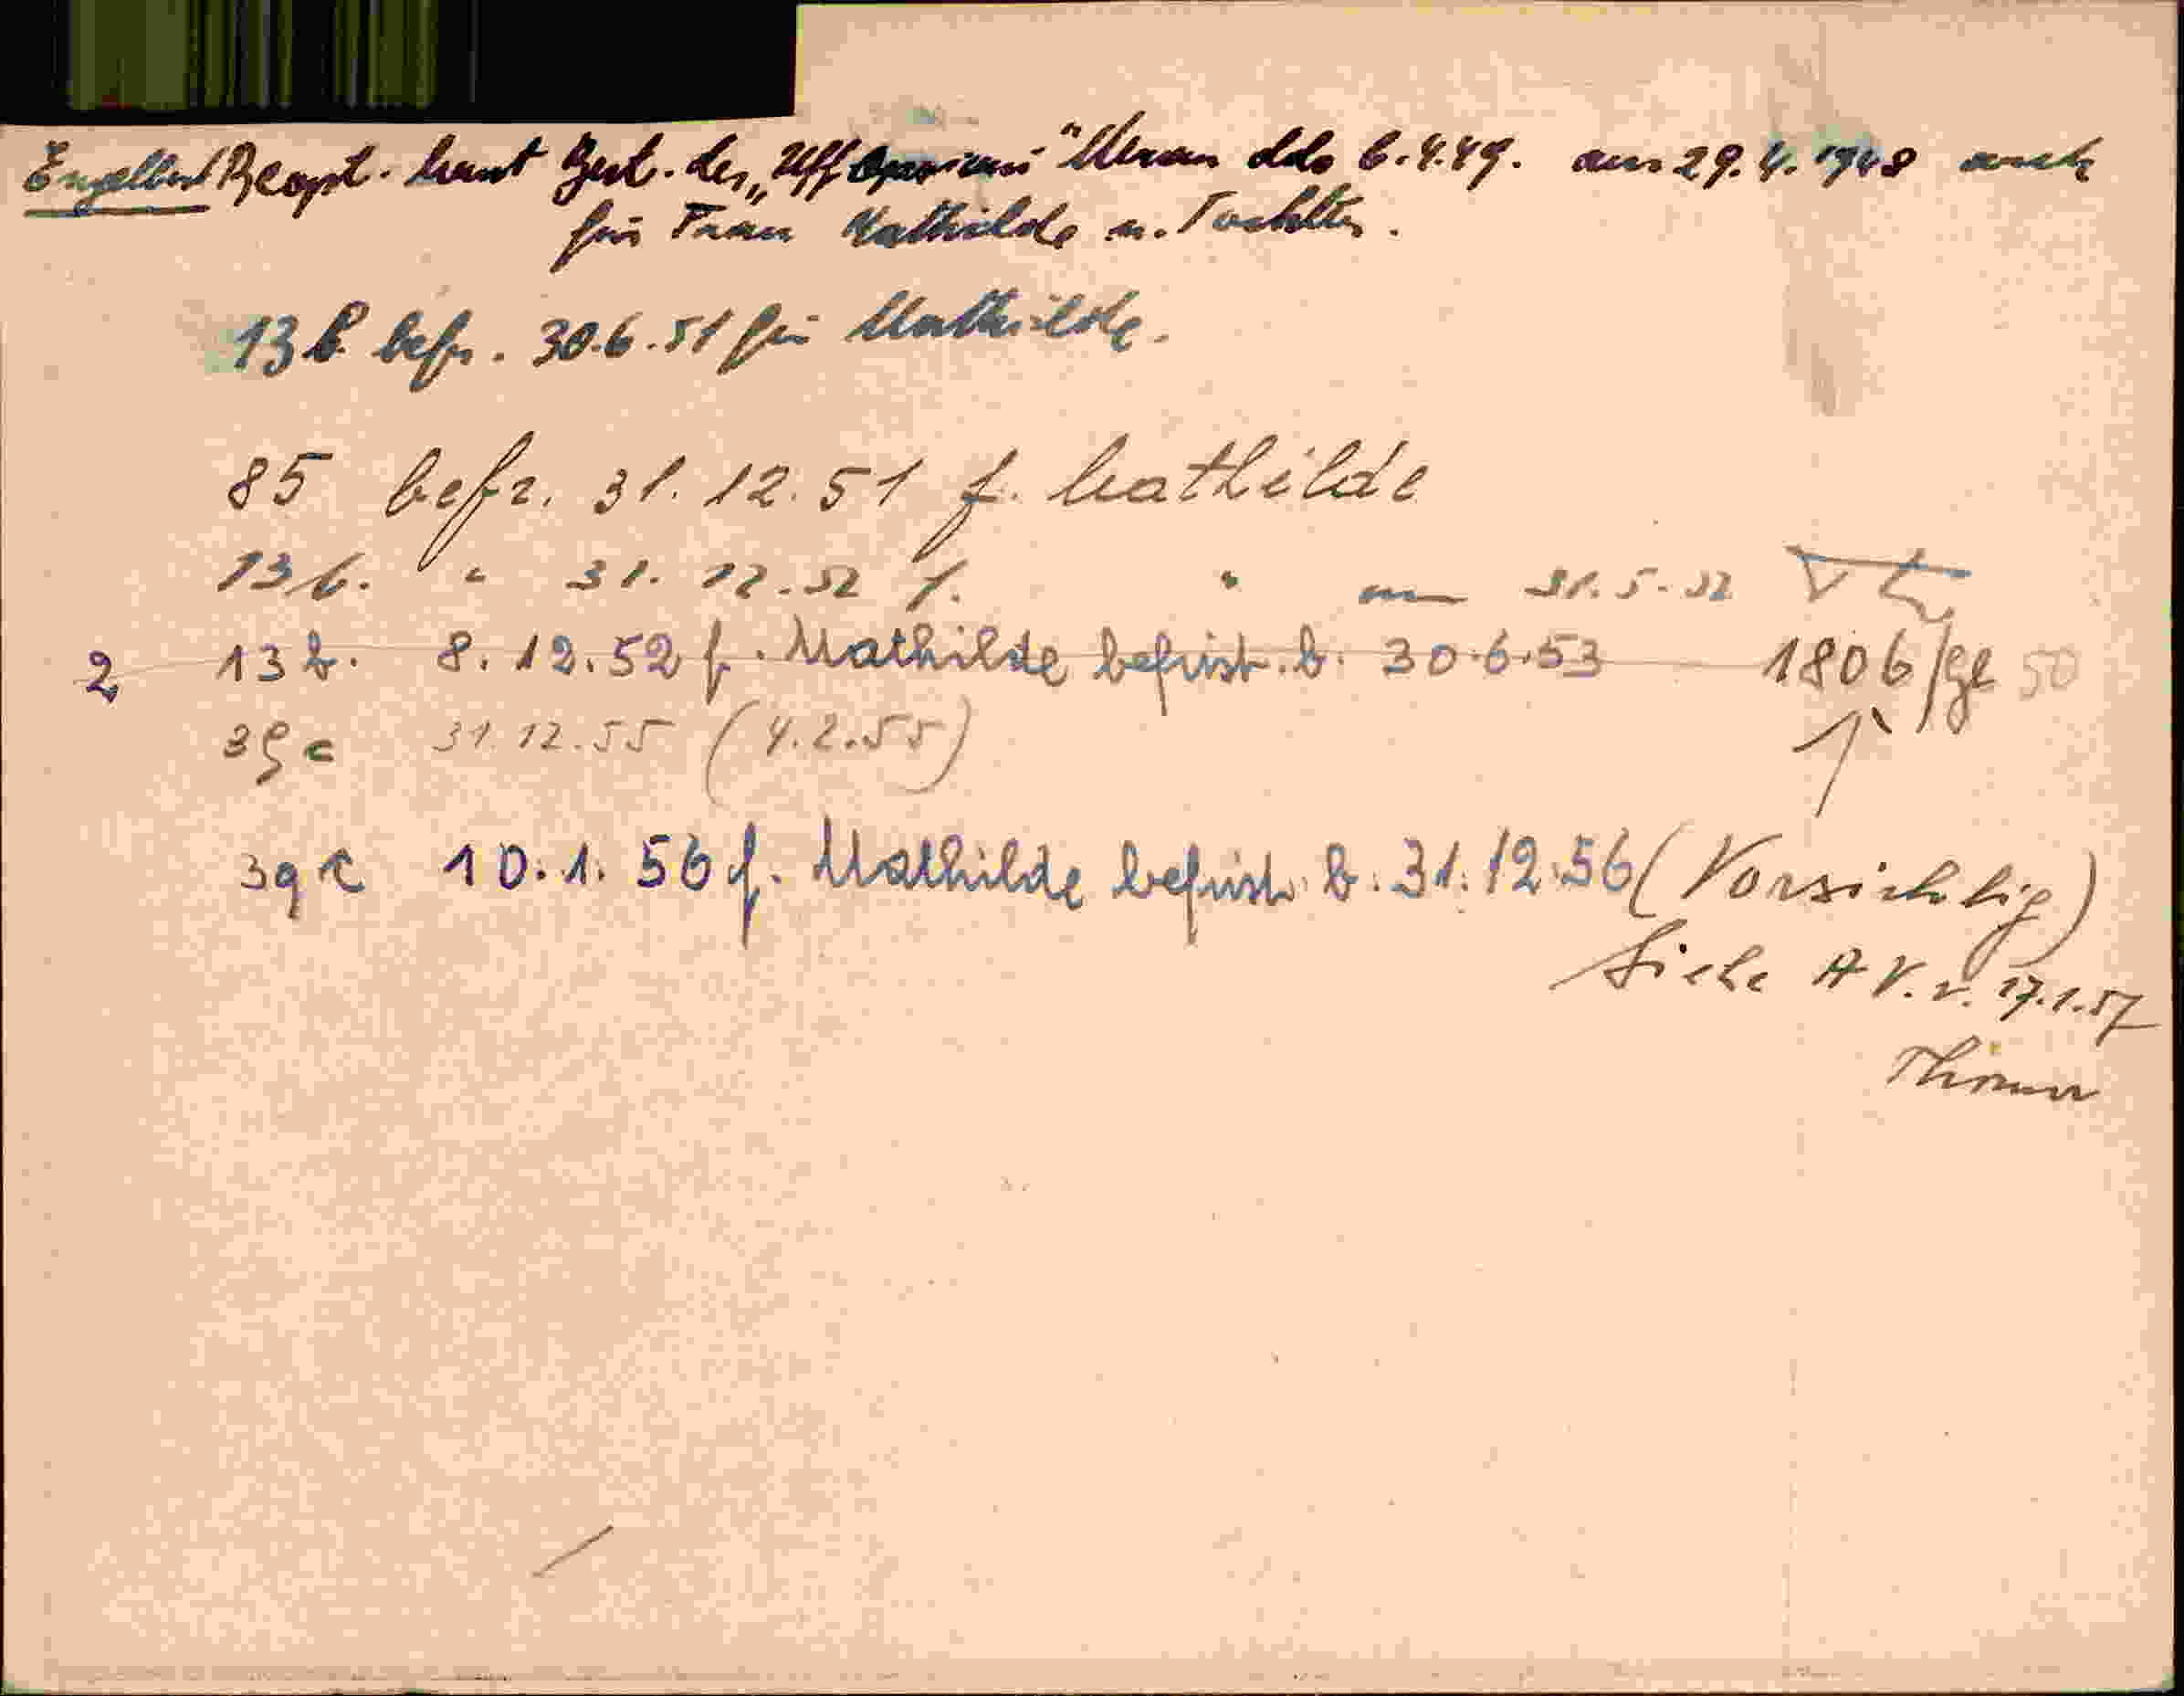 Engelbert Reopt. laut Best. des „Uff Opzioni" Meran ddo 6.4.49. am 29.4.1948 auch
für Frau Mathilde u. Tochter.
13b befr. 30.6.51 für Mathilde.
85 befr. 31.12.51 f. Mathilde
13b. " 31.12.52 f. " am 31.5.52
2 13b. 8.12.52 f. Mathilde befrist. b. 30.6.53 1806/ge 50
39c 31.12.55 (4.2.55)
39c 10.1.56 f. Mathilde befrist. b. 31.12.56 (Vorsichtig)
Siehe AV. v. 17.1.57